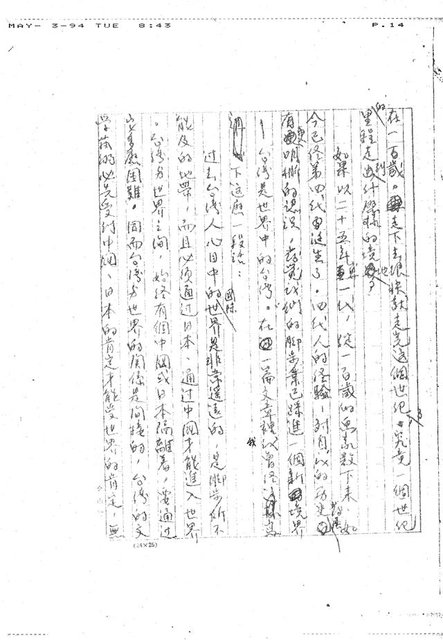 MAY- 3-94 TUE 8:43 P.14
在一百歲。走下去很快就走完這個世紀。究竟一個世紀
的里程走出什麼樣的境地?
如果以二十五年為一代，從一百歲的無數下來，如
今已經第四代誕生了。四代人的經驗，對自我的歷史
有更明晰的認識，發覺我們的腳步業已踩進一個新境界
——台灣是世界中的台灣。在一篇文章裡我曾經
下這麼一段話：
過去台灣人心目中的國際世界是非常遙遠的，是腳步所不
能及的地帶，而且必須通過日本、通過中國才能進入世界
。台灣與世界之間，始終有個中國或日本隔離着，要通過
許多廢困難。因而台灣與世界的關係是間接的，台灣的文
學藝術必先受到中國、日本的肯定才能受世界的肯定，無
(24×25)